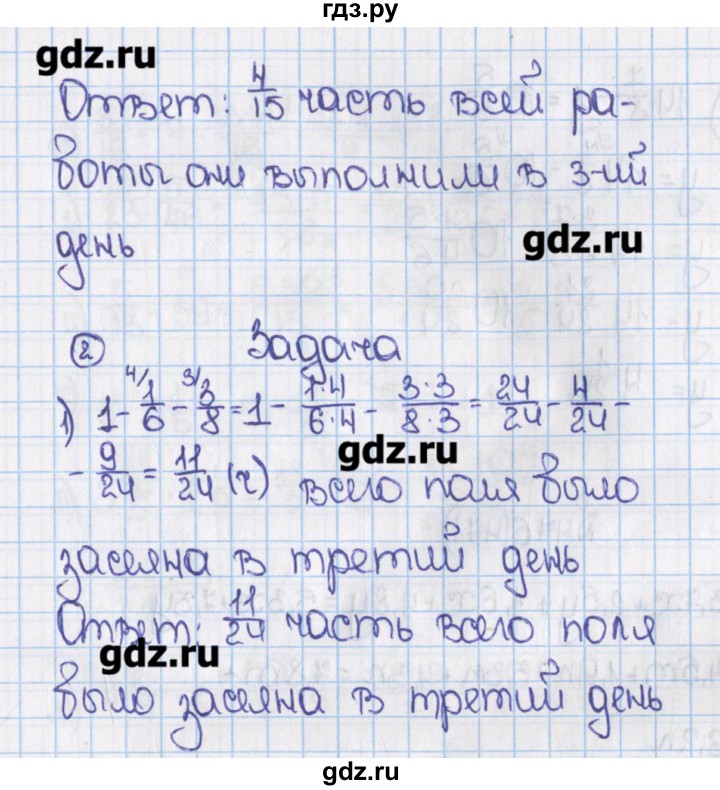 гдз.ру
gdz.ru
Ответ: 4/15 часть всей ра-
боты они выполнили в 3-ий
день
gdz.ru
② Задача
1) 1 - ⁴⁾1/6 - ³⁾3/8 = 1 - 1·4/6·4 - 3·3/8·3 = 24/24 - 4/24 -
- 9/24 = 11/24 (ч) всего поля было
gdz.ru
засеяна в третий день
Ответ: 11/24 часть всего поля
gdz.ru
было засеяна в третий день
gdz.ru